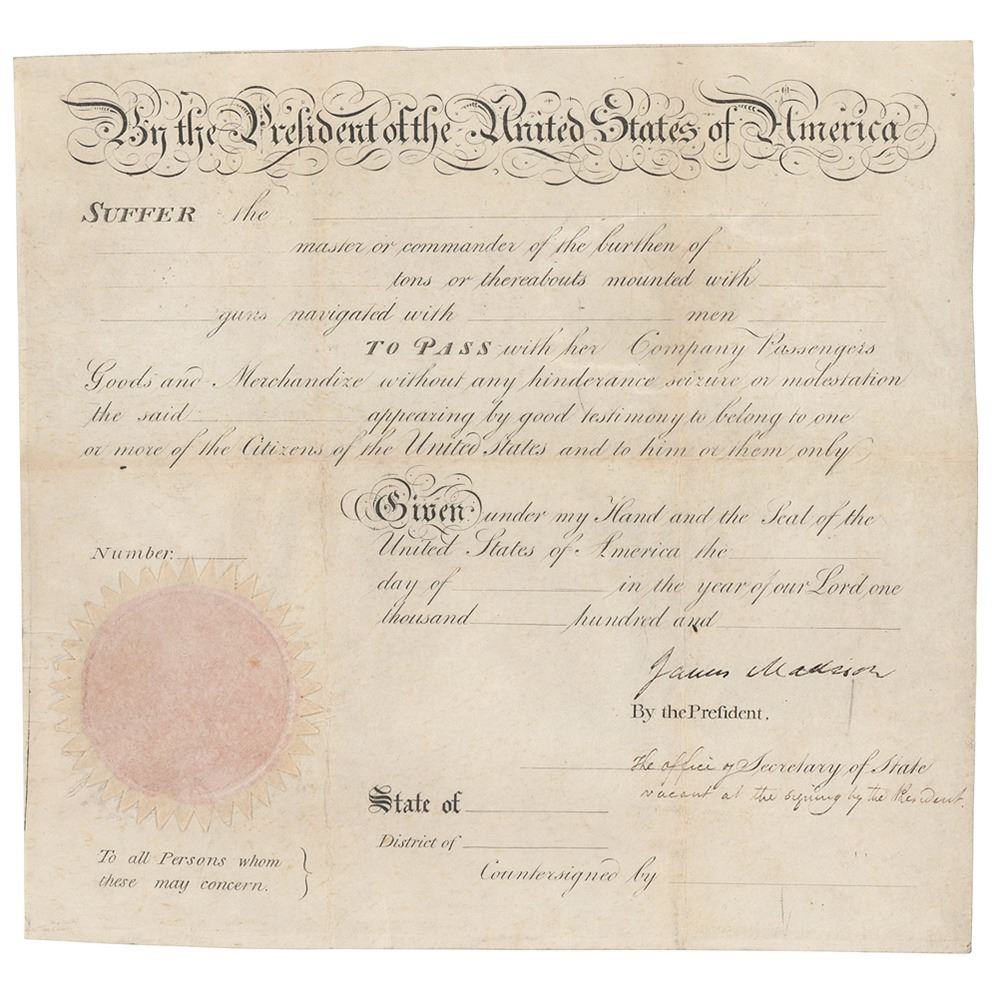 By the President of the United States of America
SUFFER the
master or commander of the burthen of
tons or thereabouts mounted with
guns navigated with men
TO PASS with her Company Passengers
Goods and Merchandize without any hinderance seizure or molestation
the said appearing by good testimony to belong to one
or more of the Citizens of the United States and to him or them only
Given under my Hand and the Seal of the
United States of America the
day of in the year of our Lord one
thousand hundred and
Number:
James Madison
By the President.
The office of Secretary of State
vacant at the signing by the President.
State of
District of
Countersigned by
To all Persons whom
these may concern.